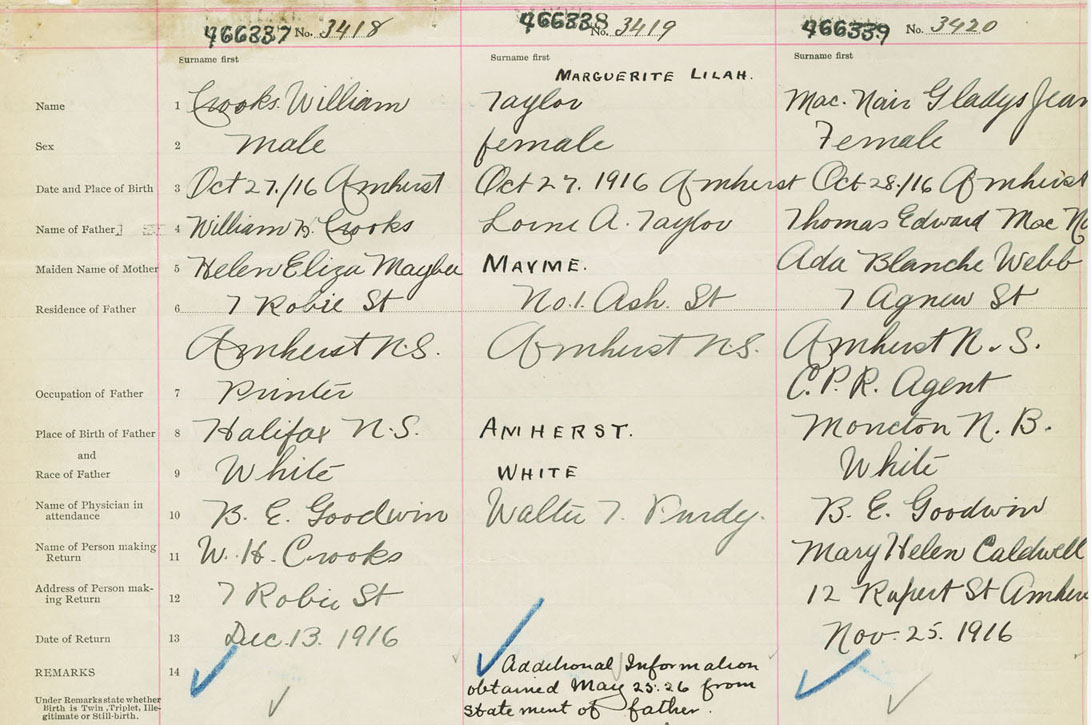 466337 No. 3418 466338 No. 3419 466339 No. 3420
Surname first Surname first Surname first
MARGUERITE LILAH.
Name 1 Crooks. William Taylor Mac. Nair Gladys Jean
Sex 2 Male female Female
Date and Place of Birth 3 Oct 27./16 Amherst Oct 27. 1916 Amherst Oct 28./16 Amherst
Name of Father 4 William H. Crooks Lorne A. Taylor Thomas Edward Mac
Maiden Name of Mother 5 Helen Eliza Maybee MAYME. Ada Blanche Webb
Residence of Father 6 7 Robie St No. 1. Ash. St 7 Agnew St
Amherst N.S. Amherst N.S. Amherst N.S.
Occupation of Father 7 Printer C.P.R. Agent
Place of Birth of Father 8 Halifax N.S. AMHERST. Moncton N.B.
and
Race of Father 9 White WHITE White
Name of Physician in
attendance 10 B. E. Goodwin Walter T. Purdy. B. E. Goodwin
Name of Person making
Return 11 W. H. Crooks Mary Helen Caldwell
Address of Person mak-
ing Return 12 7 Robie St 12 Rupert St Amhers
Date of Return 13 Dec. 13. 1916 Nov. 25. 1916
REMARKS 14 Additional Information
obtained May 25.26 from
statement of father.
Under Remarks state whether
Birth is Twin, Triplet, Ille-
gitimate or Still-birth.